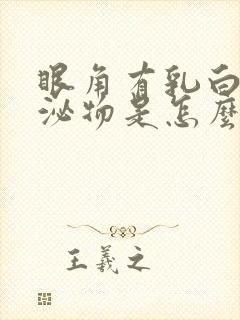 眼角有乳白
泌物是怎麼
王羲之